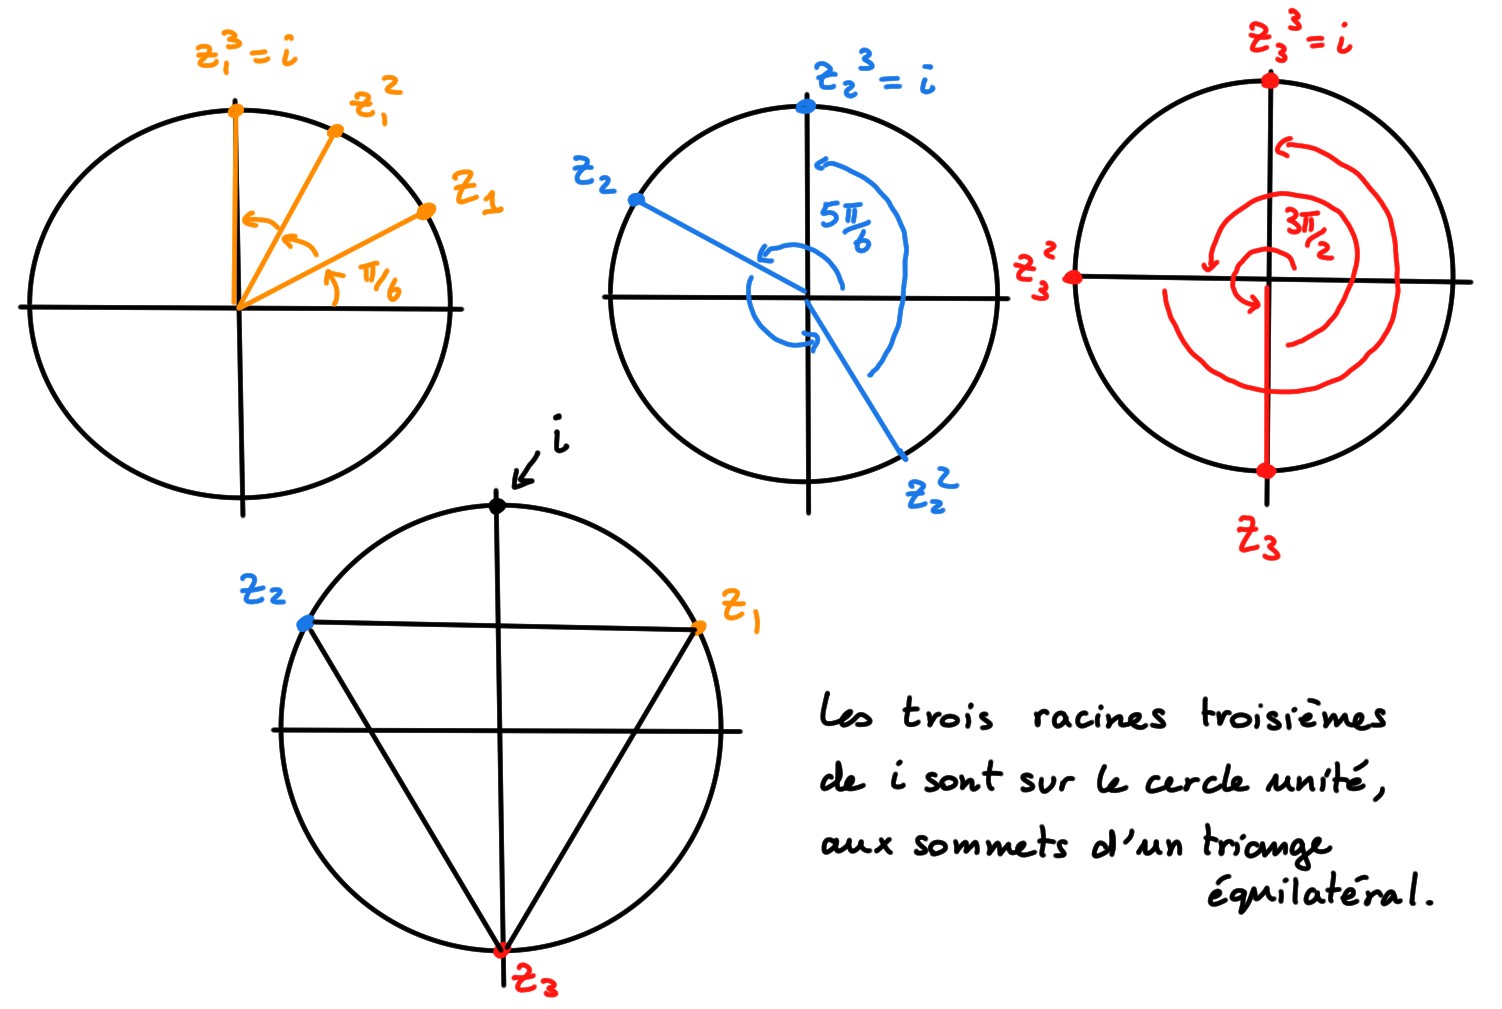 z₁³ = i
z₁²
z₁
π/6
z₂³ = i
z₂
5π/6
z₂²
z₃³ = i
3π/2
z₃²
z₃
i
z₂
z₁
z₃
Les trois racines troisièmes
de i sont sur le cercle unité,
aux sommets d'un triange
équilatéral.